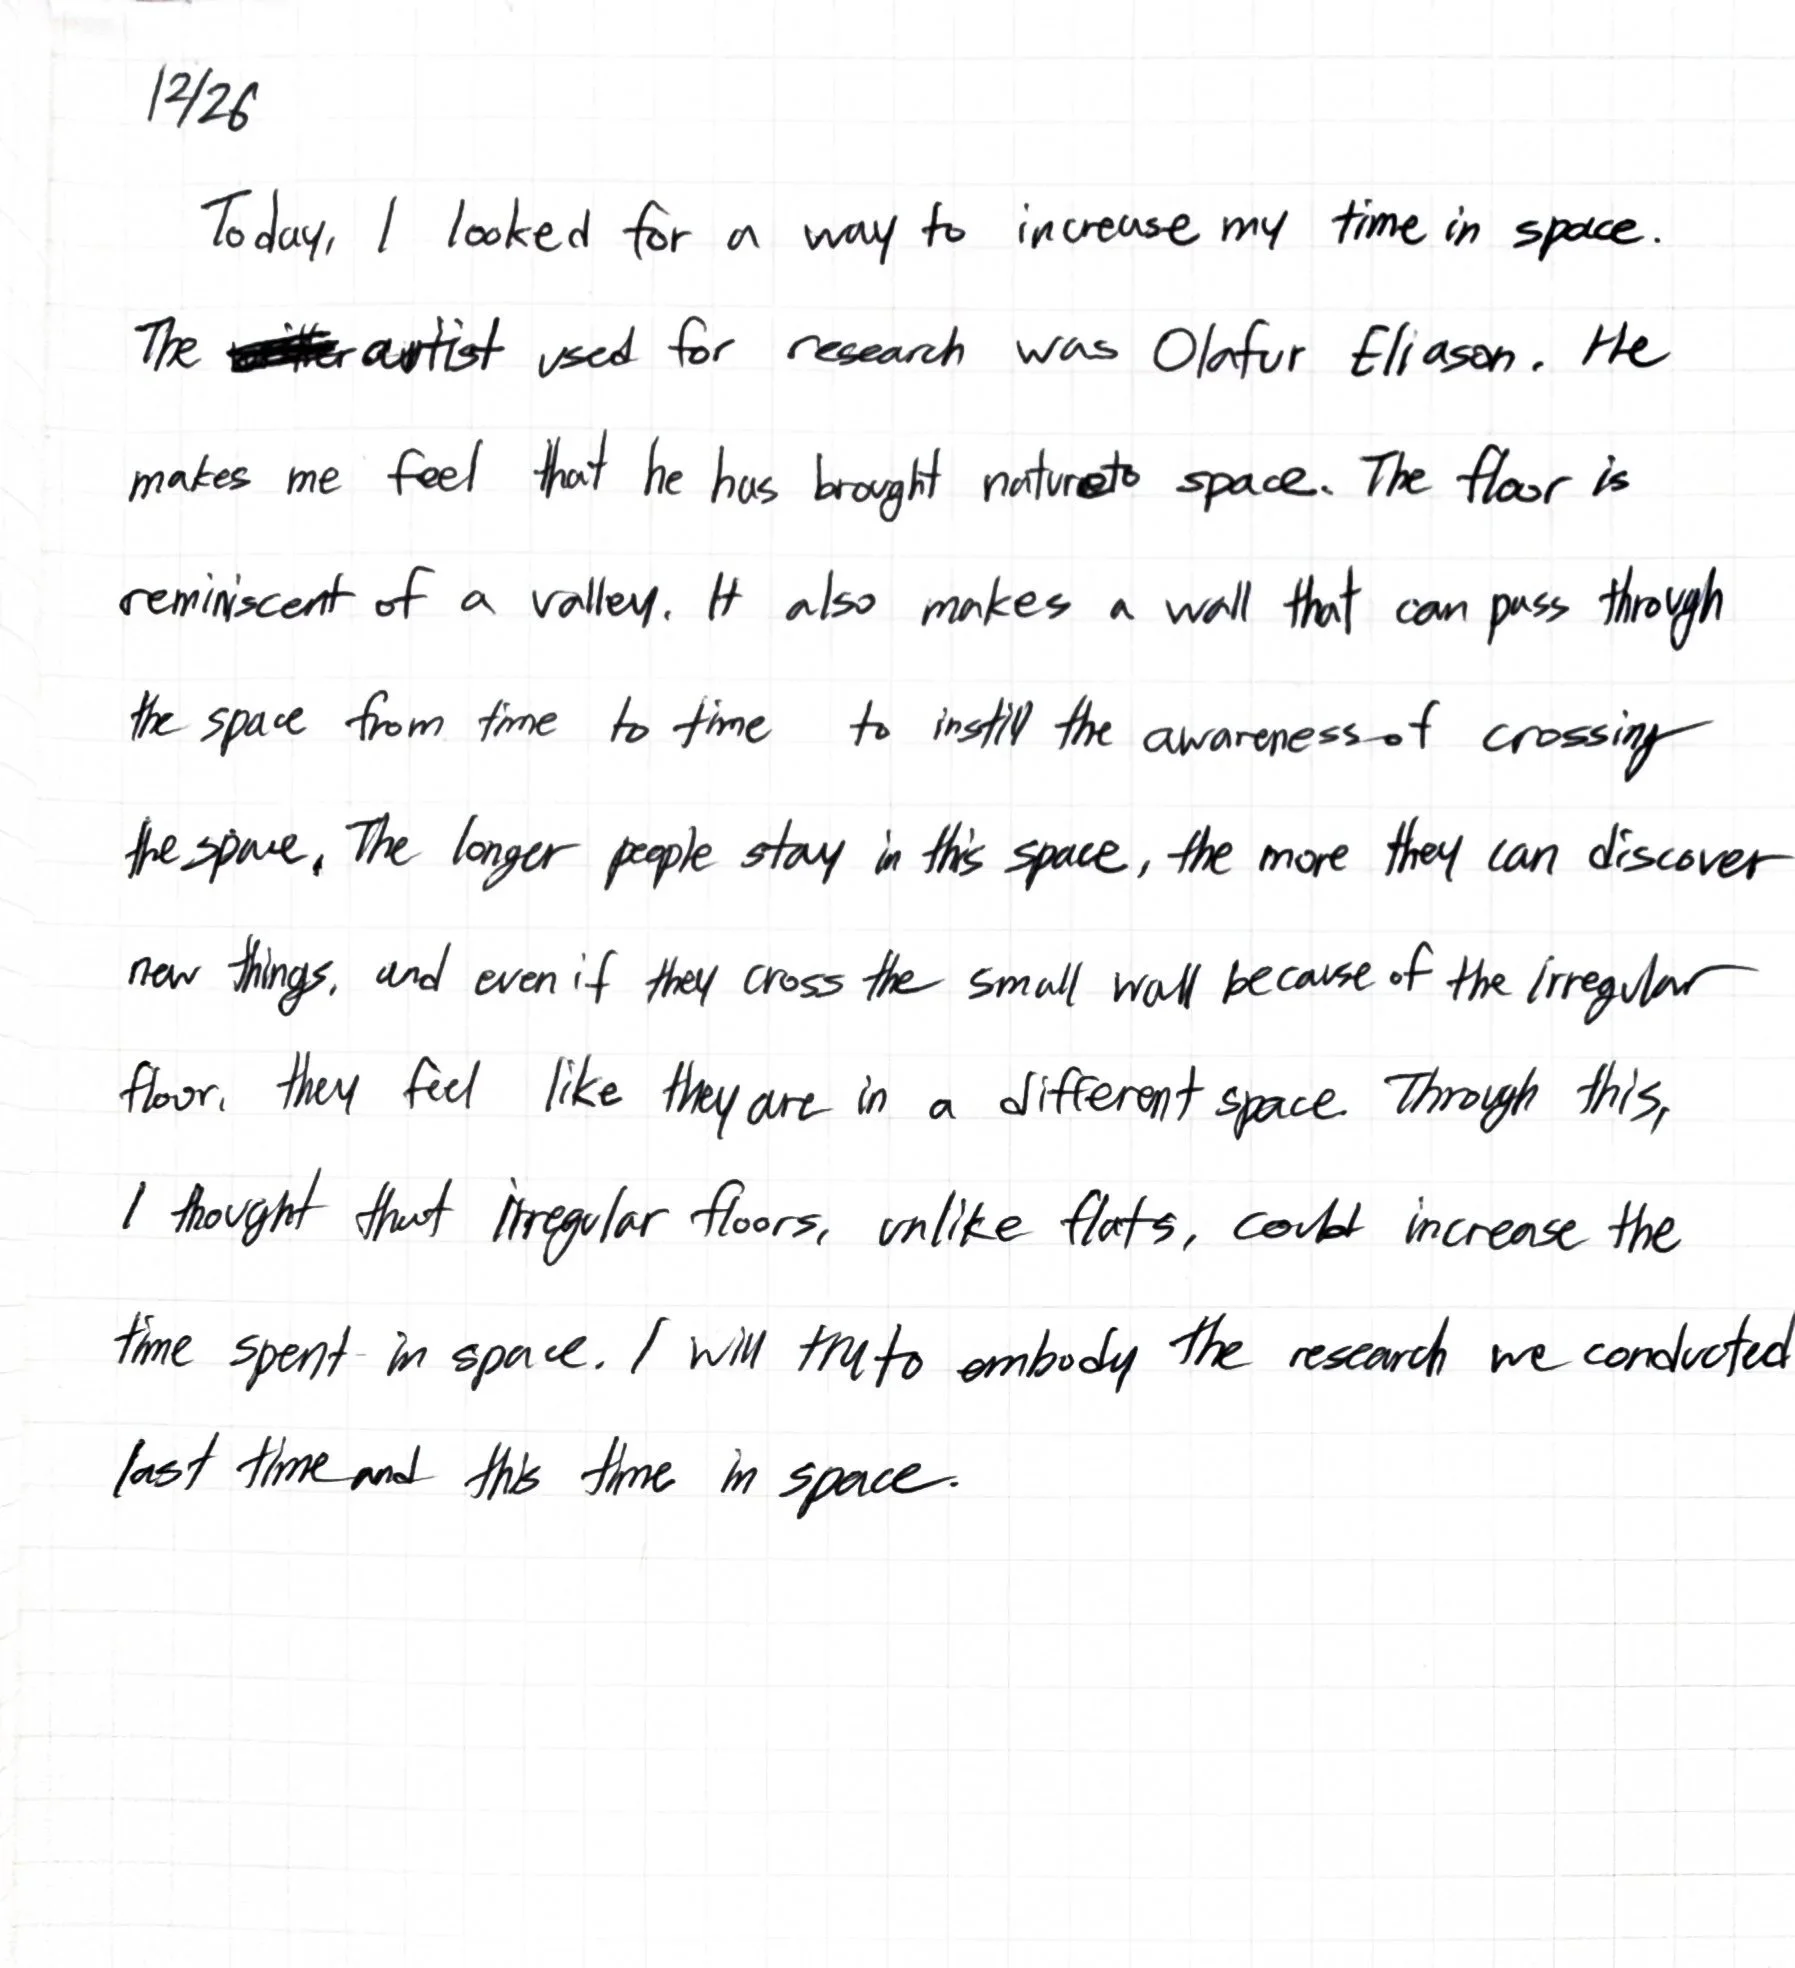 12/26
Today, I looked for a way to increase my time in space.
The artist used for research was Olafur Eliason. He
makes me feel that he has brought nature to space. The floor is
reminiscent of a valley. It also makes a wall that can pass through
the space from time to time to instill the awareness of crossing
the space. The longer people stay in this space, the more they can discover
new things, and even if they cross the small wall because of the irregular
floor, they feel like they are in a different space. Through this,
I thought that irregular floors, unlike flats, could increase the
time spent in space. I will try to embody the research we conducted
last time and this time in space.